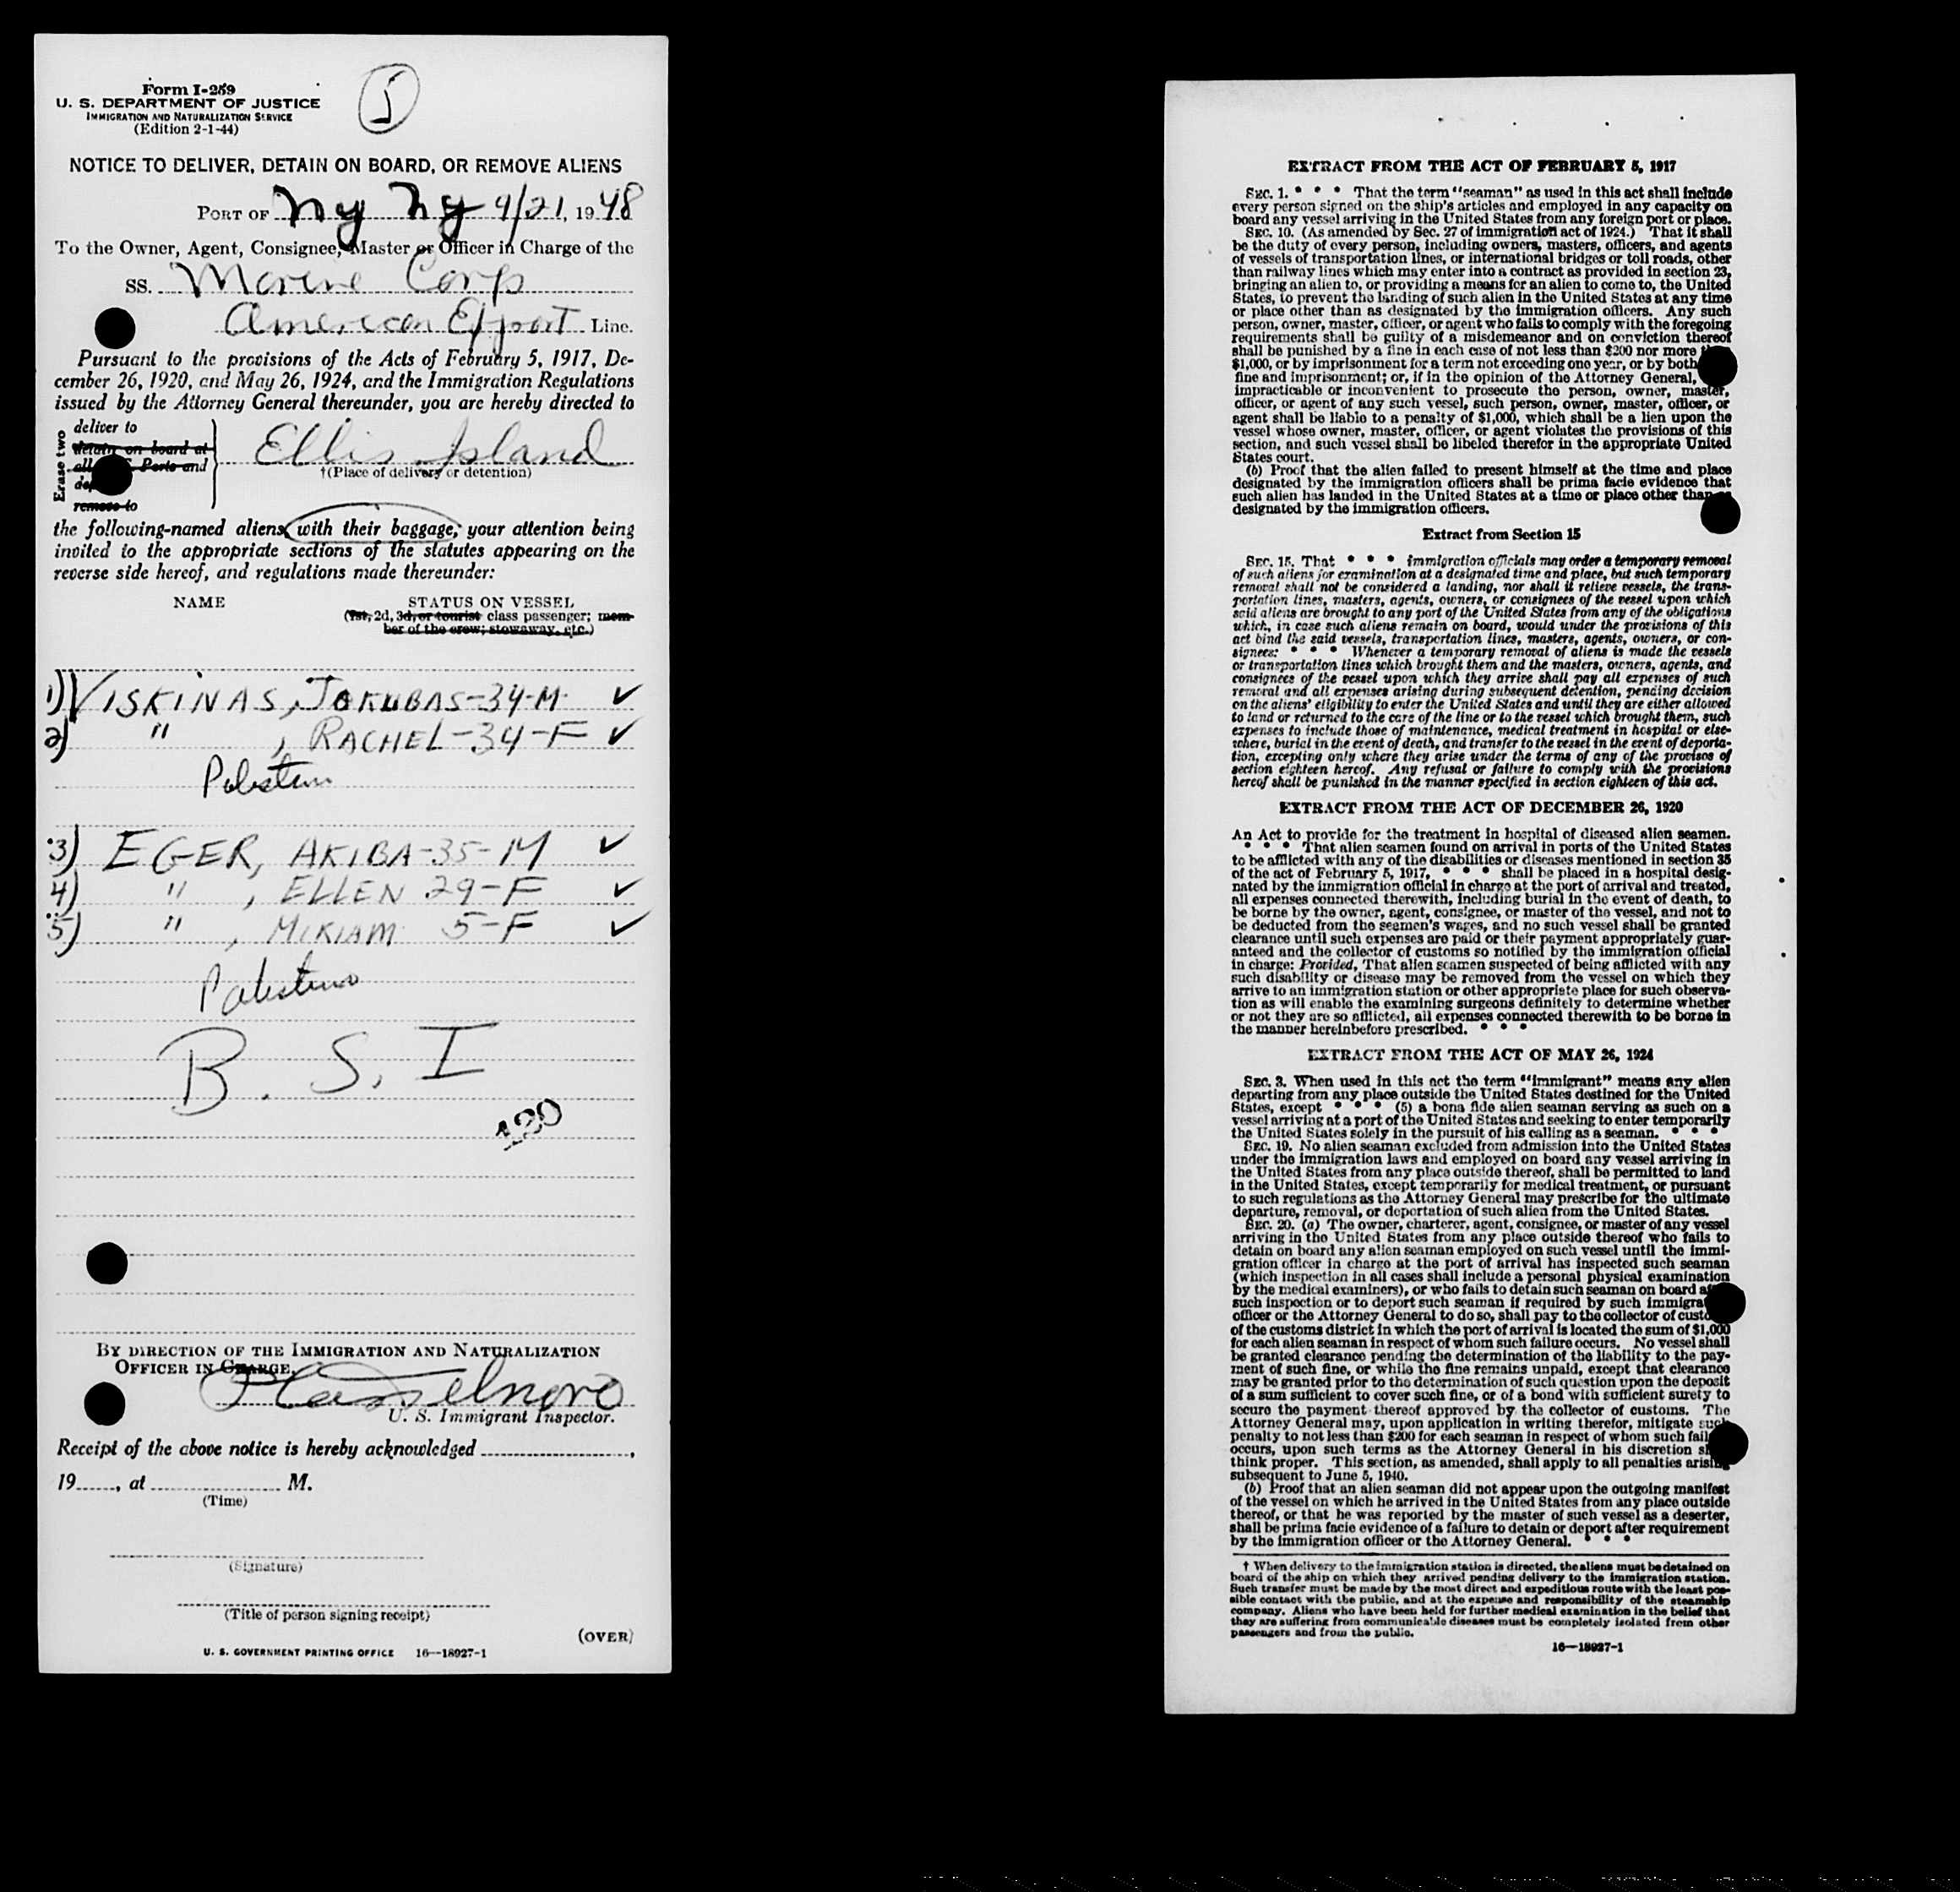 Form I-259
U. S. DEPARTMENT OF JUSTICE
IMMIGRATION AND NATURALIZATION SERVICE
(Edition 2-1-44)
5
NOTICE TO DELIVER, DETAIN ON BOARD, OR REMOVE ALIENS
PORT OF NY NY 9/21, 1948
To the Owner, Agent, Consignee, Master or Officer in Charge of the
SS. Marine Corp
American Export Line.
Pursuant to the provisions of the Acts of February 5, 1917, De-
cember 26, 1920, and May 26, 1924, and the Immigration Regulations
issued by the Attorney General thereunder, you are hereby directed to
Erase two
deliver to
detain on board at
all Ports and
remove to
Ellis Island
†(Place of delivery or detention)
the following-named aliens, with their baggage, your attention being
invited to the appropriate sections of the statutes appearing on the
reverse side hereof, and regulations made thereunder:
NAME STATUS ON VESSEL
(1st, 2d, 3d, or tourist class passenger; mem-
ber of the crew; stowaway, etc.)
1) VISKINAS, JOKUBAS-34-M ✓
2) " , RACHEL-34-F ✓
Palestine
3) EGER, AKIBA-35-M ✓
4) " , ELLEN 29-F ✓
5) " , MIRIAM 5-F ✓
Palestine
B. S. I
120
BY DIRECTION OF THE IMMIGRATION AND NATURALIZATION
OFFICER IN CHARGE.
U. S. Immigrant Inspector.
Receipt of the above notice is hereby acknowledged ,
19 , at M.
(Time)
(Signature)
(Title of person signing receipt)
(OVER)
U. S. GOVERNMENT PRINTING OFFICE 16—18927-1
EXTRACT FROM THE ACT OF FEBRUARY 5, 1917
SEC. 1. * * * That the term "seaman" as used in this act shall include
every person signed on the ship's articles and employed in any capacity on
board any vessel arriving in the United States from any foreign port or place.
SEC. 10. (As amended by Sec. 27 of immigration act of 1924.) That it shall
be the duty of every person, including owners, masters, officers, and agents
of vessels of transportation lines, or international bridges or toll roads, other
than railway lines which may enter into a contract as provided in section 23,
bringing an alien to, or providing a means for an alien to come to, the United
States, to prevent the landing of such alien in the United States at any time
or place other than as designated by the immigration officers. Any such
person, owner, master, officer, or agent who fails to comply with the foregoing
requirements shall be guilty of a misdemeanor and on conviction thereof
shall be punished by a fine in each case of not less than $200 nor more
$1,000, or by imprisonment for a term not exceeding one year, or by both
fine and imprisonment; or, if in the opinion of the Attorney General,
impracticable or inconvenient to prosecute the person, owner, master,
officer, or agent of any such vessel, such person, owner, master, officer, or
agent shall be liable to a penalty of $1,000, which shall be a lien upon the
vessel whose owner, master, officer, or agent violates the provisions of this
section, and such vessel shall be libeled therefor in the appropriate United
States court.
(b) Proof that the alien failed to present himself at the time and place
designated by the immigration officers shall be prima facie evidence that
such alien has landed in the United States at a time or place other than as
designated by the immigration officers.
Extract from Section 15
SEC. 15. That * * * immigration officials may order a temporary removal
of such aliens for examination at a designated time and place, but such temporary
removal shall not be considered a landing, nor shall it relieve vessels, the trans-
portation lines, masters, agents, owners, or consignees of the vessel upon which
said aliens are brought to any port of the United States from any of the obligations
which, in case such aliens remain on board, would under the provisions of this
act bind the said vessels, transportation lines, masters, agents, owners, or con-
signees: * * * Whenever a temporary removal of aliens is made the vessels
or transportation lines which brought them and the masters, owners, agents, and
consignees of the vessel upon which they arrive shall pay all expenses of such
removal and all expenses arising during subsequent detention, pending decision
on the aliens' eligibility to enter the United States and until they are either allowed
to land or returned to the care of the line or to the vessel which brought them, such
expenses to include those of maintenance, medical treatment in hospital or else-
where, burial in the event of death, and transfer to the vessel in the event of deporta-
tion, excepting only where they arise under the terms of any of the provisos of
section eighteen hereof. Any refusal or failure to comply with the provisions
hereof shall be punished in the manner specified in section eighteen of this act.
EXTRACT FROM THE ACT OF DECEMBER 26, 1920
An Act to provide for the treatment in hospital of diseased alien seamen.
* * * That alien seamen found on arrival in ports of the United States
to be afflicted with any of the disabilities or diseases mentioned in section 35
of the act of February 5, 1917, * * * shall be placed in a hospital desig-
nated by the immigration official in charge at the port of arrival and treated,
all expenses connected therewith, including burial in the event of death, to
be borne by the owner, agent, consignee, or master of the vessel, and not to
be deducted from the seamen's wages, and no such vessel shall be granted
clearance until such expenses are paid or their payment appropriately guar-
anteed and the collector of customs so notified by the immigration official
in charge: Provided, That alien seamen suspected of being afflicted with any
such disability or disease may be removed from the vessel on which they
arrive to an immigration station or other appropriate place for such observa-
tion as will enable the examining surgeons definitely to determine whether
or not they are so afflicted, all expenses connected therewith to be borne in
the manner hereinbefore prescribed. * * *
EXTRACT FROM THE ACT OF MAY 26, 1924
SEC. 3. When used in this act the term "immigrant" means any alien
departing from any place outside the United States destined for the United
States, except * * * (5) a bona fide alien seaman serving as such on a
vessel arriving at a port of the United States and seeking to enter temporarily
the United States solely in the pursuit of his calling as a seaman. * * *
SEC. 19. No alien seaman excluded from admission into the United States
under the immigration laws and employed on board any vessel arriving in
the United States from any place outside thereof, shall be permitted to land
in the United States, except temporarily for medical treatment, or pursuant
to such regulations as the Attorney General may prescribe for the ultimate
departure, removal, or deportation of such alien from the United States.
SEC. 20. (a) The owner, charterer, agent, consignee, or master of any vessel
arriving in the United States from any place outside thereof who fails to
detain on board any alien seaman employed on such vessel until the immi-
gration officer in charge at the port of arrival has inspected such seaman
(which inspection in all cases shall include a personal physical examination
by the medical examiners), or who fails to detain such seaman on board
such inspection or to deport such seaman if required by such
officer or the Attorney General to do so, shall pay to the collector of
of the customs district in which the port of arrival is located the sum of $1,000
for each alien seaman in respect of whom such failure occurs. No vessel shall
be granted clearance pending the determination of the liability to the pay-
ment of such fine, or while the fine remains unpaid, except that clearance
may be granted prior to the determination of such question upon the deposit
of a sum sufficient to cover such fine, or of a bond with sufficient surety to
secure the payment thereof approved by the collector of customs. The
Attorney General may, upon application in writing therefor, mitigate such
penalty to not less than $200 for each seaman in respect of whom such
occurs, upon such terms as the Attorney General in his discretion
think proper. This section, as amended, shall apply to all penalties arising
subsequent to June 5, 1940.
(b) Proof that an alien seaman did not appear upon the outgoing manifest
of the vessel on which he arrived in the United States from any place outside
thereof, or that he was reported by the master of such vessel as a deserter,
shall be prima facie evidence of a failure to detain or deport after requirement
by the immigration officer or the Attorney General. * * *
† When delivery to the immigration station is directed, the aliens must be detained on
board of the ship on which they arrived pending delivery to the immigration station.
Such transfer must be made by the most direct and expeditious route with the least pos-
sible contact with the public, and at the expense and responsibility of the steamship
company. Aliens who have been held for further medical examination in the belief that
they are suffering from communicable diseases must be completely isolated from other
passengers and from the public.
16—18927-1